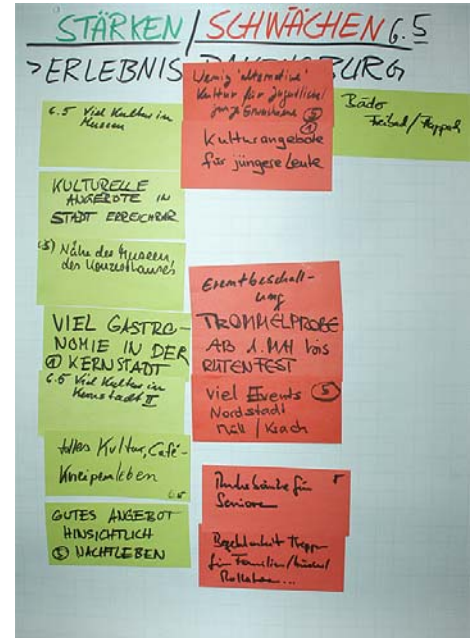 STÄRKEN / SCHWÄCHEN 6.5
> ERLEBNIS RAVENSBURG
6.5 Viel Kultur im
Museen
KULTURELLE
ANGEBOTE IN
STADT ERREICHBAR
(5) Nähe des Museen,
des Konzerthauses
VIEL GASTRO-
NOMIE IN DER
① KERNSTADT
6.5 Viel Kultur in
Kernstadt II
tolles Kultur, Café-
Kneipenleben
6.5
GUTES ANGEBOT
HINSICHTLICH
⑤ NACHTLEBEN
Wenig "alternative"
Kultur für jugendliche/
junge Erwachsene ⑤
①
Kulturangebote
für jüngere Leute
Eventbeschall-
ung
TROMMELPROBE
AB 1. MAI bis
RUTENFEST
viel Events ⑤
Nordstadt
Müll / Krach
Ruhebänke für 5
Senioren
Begehbarkeit Treppen
für Familien/
Rollatoren...
Bäder
Freibad/